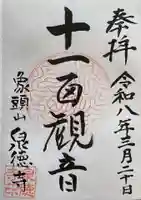 奉拝
令和八年三月二十日
十一面観音
象頭山
泉徳寺